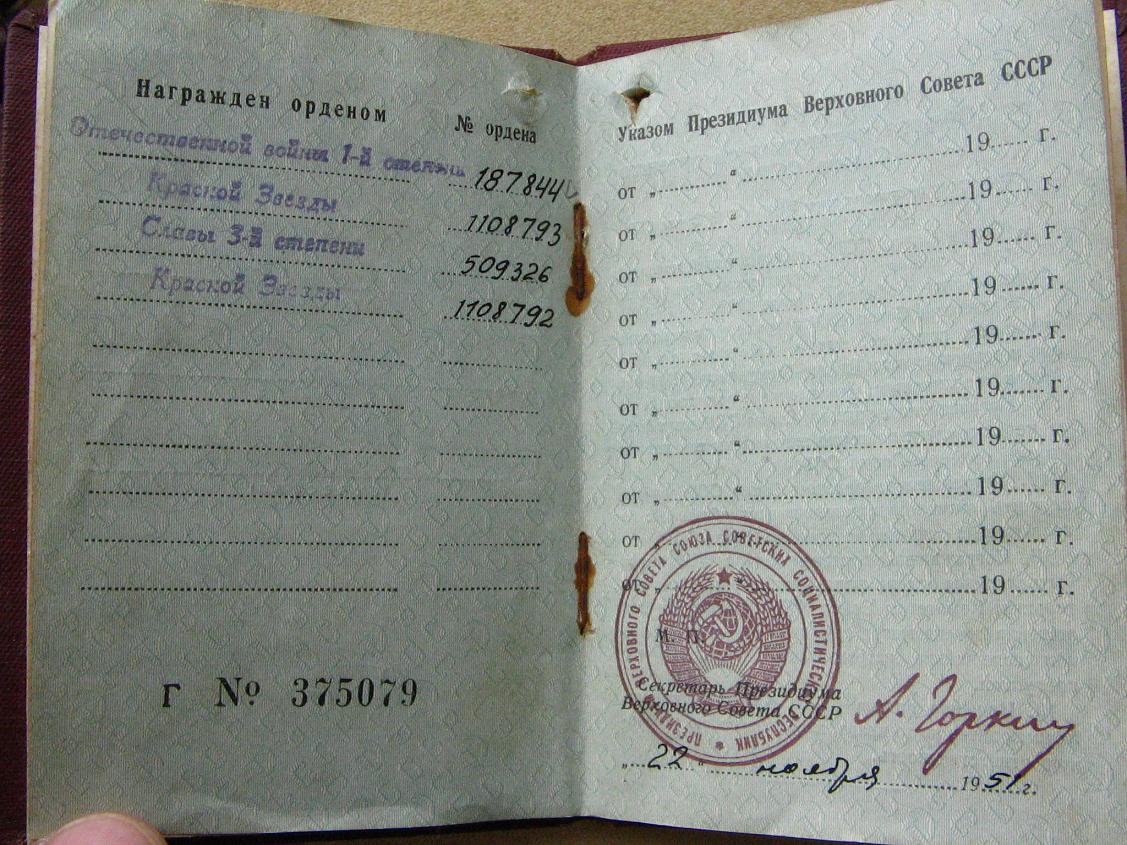 Награжден орденом
№ ордена
Отечественной войны 1-й степени 187844
Красной Звезды 1108793
Славы 3-й степени 509326
Красной Звезды 1108792
Г № 375079
Указом Президиума Верховного Совета СССР
от „ “ 19 г.
от „ “ 19 г.
от „ “ 19 г.
от „ “ 19 г.
от „ “ 19 г.
от „ “ 19 г.
от „ “ 19 г.
от „ “ 19 г.
от „ “ 19 г.
от „ “ 19 г.
М. П.
ПРЕЗИДИУМ ВЕРХОВНОГО СОВЕТА СОЮЗА СОВЕТСКИХ СОЦИАЛИСТИЧЕСКИХ РЕСПУБЛИК
Секретарь Президиума
Верховного Совета СССР
А. Горкин
„ 22 “ ноября 1951 г.